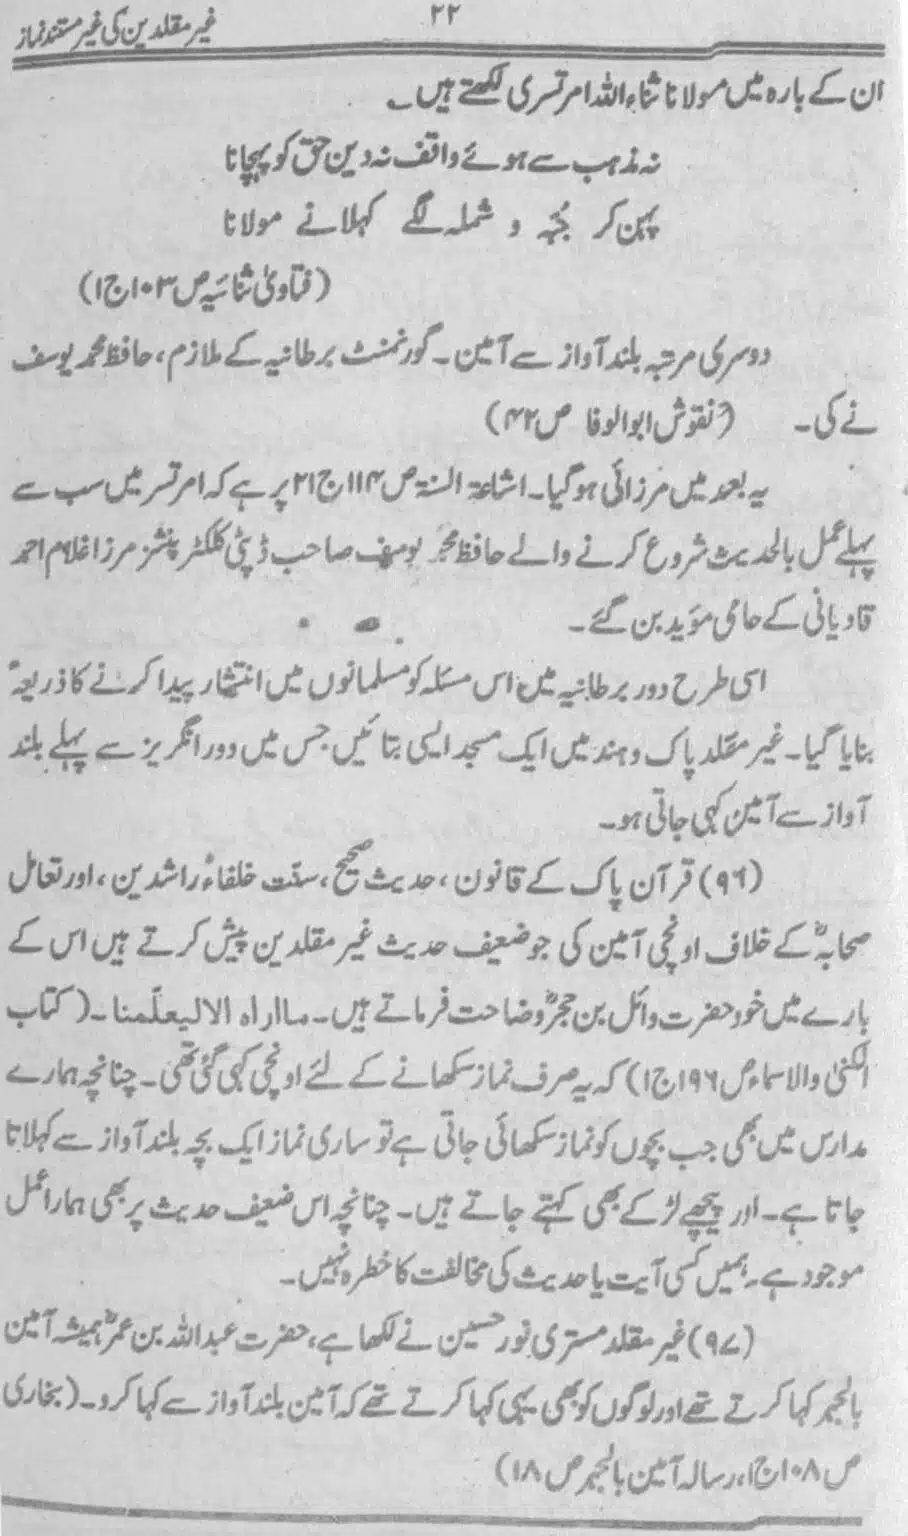 غیر مقلدین کی غیر مستند نماز
۲۲
ان کے بارہ میں مولانا ثناء اللہ امرتسری لکھتے ہیں۔
نہ مذہب سے ہوئے واقف نہ دین حق کو پہچانا
پہن کر جُبہ و شملہ لگے کہلانے مولانا
(فتاویٰ ثنائیہ ص۱۰۳ج۱)
دوسری مرتبہ بلند آواز سے آمین۔ گورنمنٹ برطانیہ کے ملازم، حافظ محمد یوسف
نے کی۔ (نقوش ابوالوفا ص۴۲)
یہ بعد میں مرزائی ہو گیا۔ اشاعۃ السنۃ ص۱۱۴ج۲۱ پر ہے کہ امرتسر میں سب سے
پہلے عمل بالحدیث شروع کرنے والے حافظ محمد یوسف صاحب ڈپٹی کلکٹر پنشنر مرزا غلام احمد
قادیانی کے حامی مؤید بن گئے۔
اسی طرح دور برطانیہ میں اس مسئلہ کو مسلمانوں میں انتشار پیدا کرنے کا ذریعہ
بنایا گیا۔ غیر مقلد پاک و ہند میں ایک مسجد ایسی بتائیں جس میں دور انگریز سے پہلے بلند
آواز سے آمین کہی جاتی ہو۔
(۹۶) قرآن پاک کے قانون، حدیث صحیح، سنّت خلفاءِ راشدین، اور تعامل
صحابہؓ کے خلاف اونچی آمین کی جو ضعیف حدیث غیر مقلدین پیش کرتے ہیں اس کے
بارے میں خود حضرت وائل بن حجرؓ وضاحت فرماتے ہیں۔ مااراہ الا لیعلّمنا۔ (کتاب
الکنیٰ والاسماء ص۱۹۶ج۱) کہ یہ صرف نماز سکھانے کے لئے اونچی کہی گئی تھی۔ چنانچہ ہمارے
مدارس میں بھی جب بچوں کو نماز سکھائی جاتی ہے تو ساری نماز ایک بچہ بلند آواز سے کہلاتا
جاتا ہے۔ اور پیچھے لڑکے بھی کہتے جاتے ہیں۔ چنانچہ اس ضعیف حدیث پر بھی ہمارا عمل
موجود ہے۔ ہمیں کسی آیت یا حدیث کی مخالفت کا خطرہ نہیں۔
(۹۷) غیر مقلد مستری نور حسین نے لکھا ہے، حضرت عبداللہ بن عمرؓ ہمیشہ آمین
بالجہر کہا کرتے تھے اور لوگوں کو بھی یہی کہا کرتے تھے کہ آمین بلند آواز سے کہا کرو۔ (بخاری
ص۱۰۸ج۱، رسالہ آمین بالجہر ص۱۸)